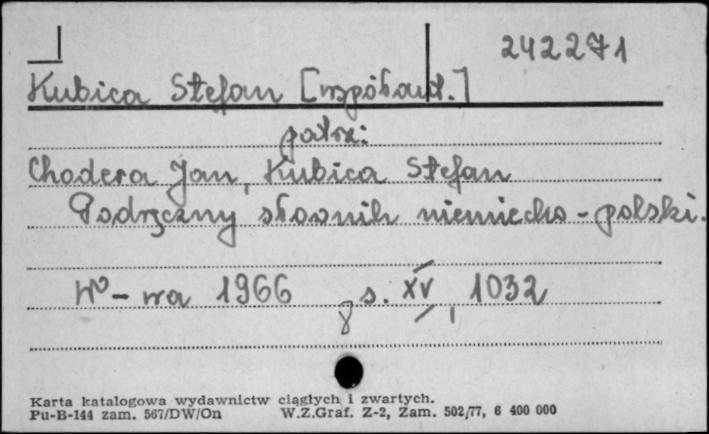 242271
Kubica Stefan [współaut.]
patrz:
Chodera Jan, Kubica Stefan
Podręczny słownik niemiecko-polski.
Wº-wa 1966 8 s. XV, 1032
Karta katalogowa wydawnictw ciągłych i zwartych.
Pu-B-144 zam. 567/DW/On W.Z.Graf. Z-2, Zam. 502/77, 6 400 000